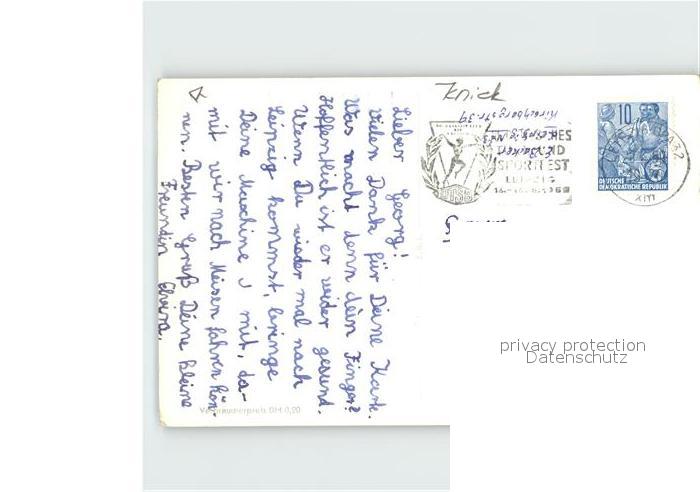 Lieber Georg!
Vielen Dank für Deine Karte.
Was macht denn dein Finger?
Hoffentlich ist er wider gesund.
Wenn Du wieder mal nach
Leipzig kommst, bringe
Deine Maschine mit, da-
mit wir nach Meisen fahren kön-
nen. Besten Gruß Deine kleine
Freundin Elvira.
Verbraucherpreis DM 0,20
Knick
Kirschbergstr. 39
SPORTFEST
LEIPZIG
10
DEUTSCHE
DEMOKRATISCHE REPUBLIK
privacy protection
Datenschutz